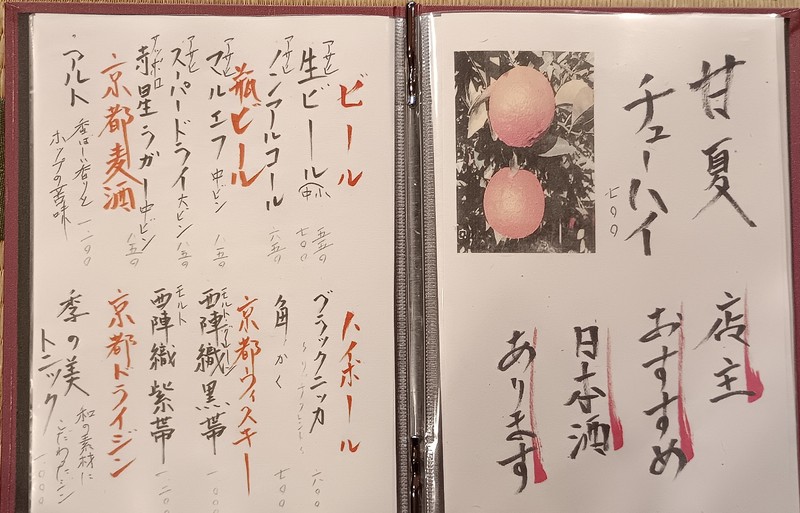 甘夏
チューハイ
七〇〇
店主
おすすめ
日本酒
あります
ビール
アサヒ
生ビール 中 小
七〇〇 五五〇
アサヒ
ノンアルコール
六五〇
瓶ビール
アサヒ
マルエフ 中ビン
八五〇
アサヒ
スーパードライ 大ビン
八五〇
サッポロ
赤星ラガー 中ビン
八五〇
京都麦酒
アルト 香ばしい香りと
ホップの苦味
一、二〇〇
ハイボール
ブラックニッカ
六〇〇
角 かく
七〇〇
京都ウィスキー
モルト・グレーン
西陣織 黒帯
モルト
西陣織 紫帯
一、二〇〇
京都ドライジン
季の美
トニック
和の素材に
こだわったジン
一、〇〇〇